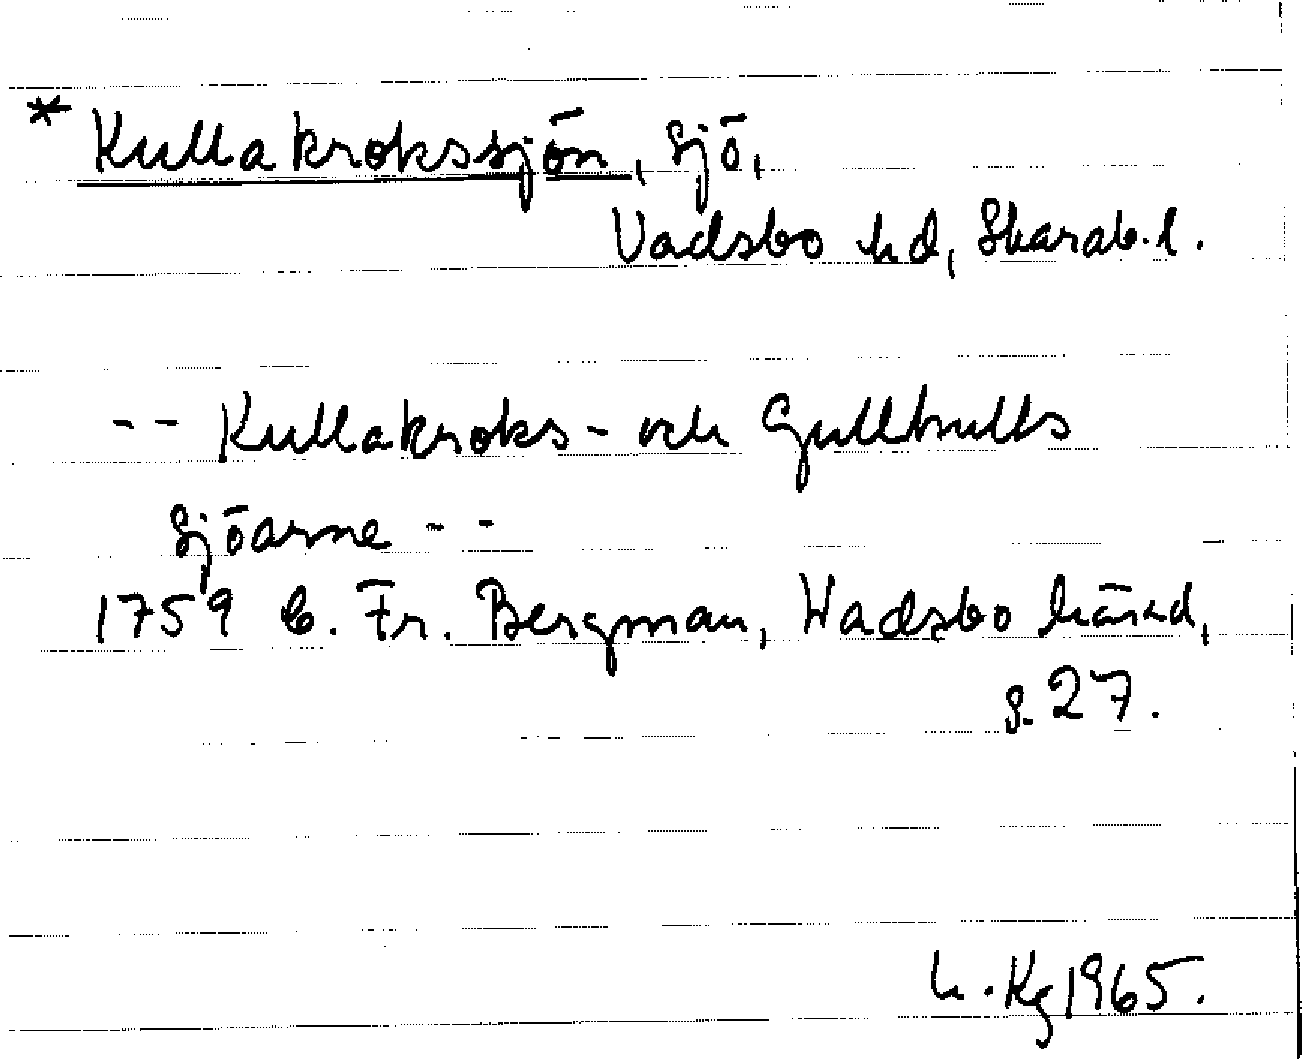 * Kullakrokssjön, sjö,
Vadsbo hd, Skarab. l.
-- Kullakroks- och Gullhults
sjöarne --
1759 C. Fr. Bergman, Wadsbo härad,
s. 27.
L. Kg 1965.